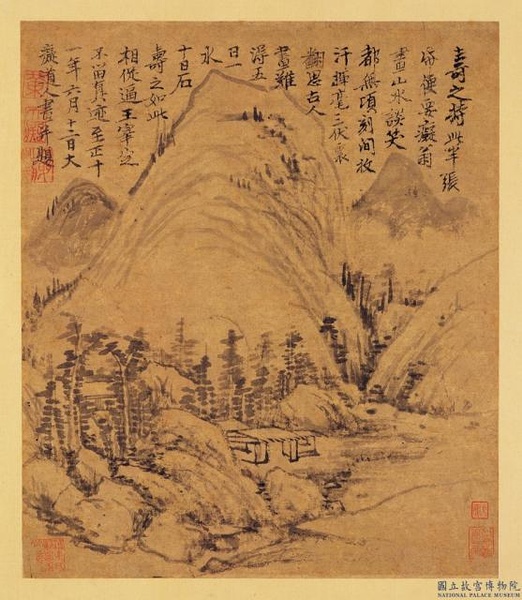 壽之持此半張
帋便要癡翁
畫山水談笑
都無頃刻間放
汗揮毫三伏裏
翻思古人
畫難
得五
日一
水
十日石
壽之如此
相促逼王宰定
不留真迹至正十
一年六月十二日大
癡道人畫并題
國立故宮博物院
NATIONAL PALACE MUSEUM